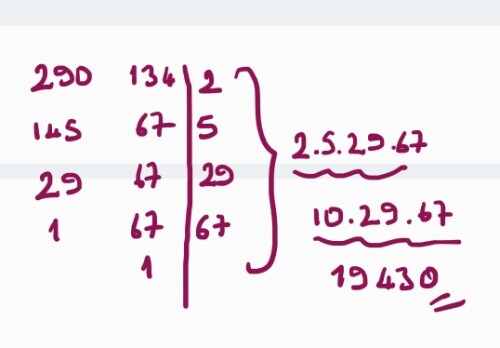 290 134 2
145 67 5
29 67 29
1 67 67
1
2.5.29.67
10.29.67
19430